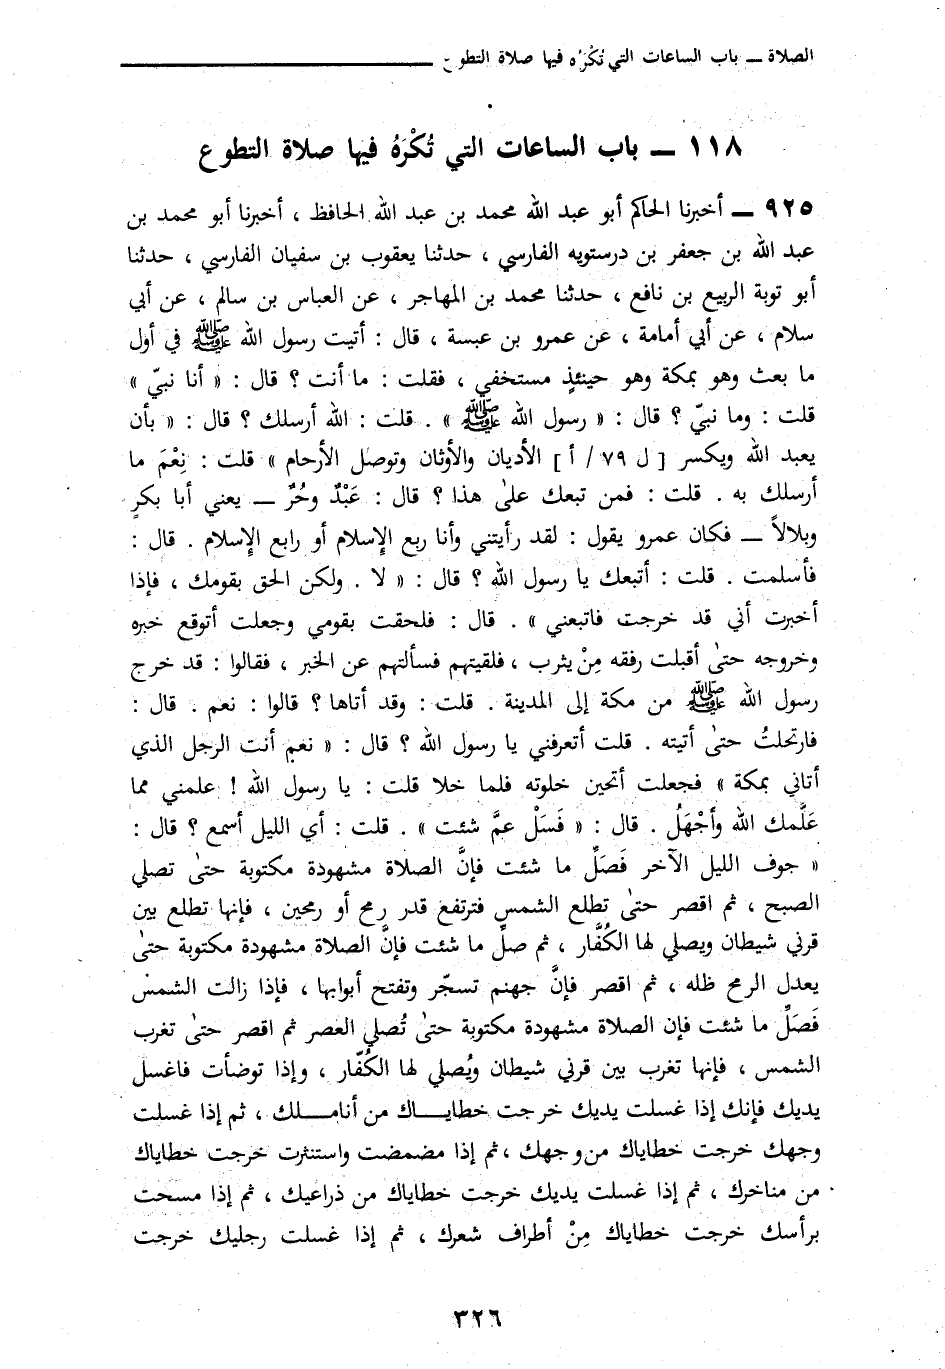 الصلاة ــ باب الساعات التي تُكْرَه فيها صلاة التطوع
١١٨ ــ باب الساعات التي تُكْرَهُ فيها صلاة التطوع
٩٢٥ ــ أخبرنا الحاكم أبو عبد الله محمد بن عبد الله الحافظ ، أخبرنا أبو محمد بن
عبد الله بن جعفر بن درستويه الفارسي ، حدثنا يعقوب بن سفيان الفارسي ، حدثنا
أبو توبة الربيع بن نافع ، حدثنا محمد بن المهاجر ، عن العباس بن سالم ، عن أبي
سلام ، عن أبي أمامة ، عن عمرو بن عبسة ، قال : أتيت رسول الله ﷺ في أول
ما بعث وهو بمكة وهو حينئذٍ مستخفي ، فقلت : ما أنت ؟ قال : « أنا نبيّ »
قلت : وما نبيّ ؟ قال : « رسول الله ﷺ » . قلت : الله أرسلك ؟ قال : « بأن
يعبد الله ويكسر [ ل ٧٩ / أ ] الأديان والأوثان وتوصل الأرحام » قلت : نِعْمَ ما
أرسلك به . قلت : فمن تبعك علىٰ هذا ؟ قال : عَبْدٌ وحُرٌ ــ يعني أبا بكرٍ
وبلالاً ــ فكان عمرو يقول : لقد رأيتني وأنا ربع الإسلام أو رابع الإسلام . قال :
فأسلمت . قلت : أتبعك يا رسول الله ؟ قال : « لا . ولكن الحق بقومك ، فإذا
أخبرت أني قد خرجت فاتبعني » . قال : فلحقت بقومي وجعلت أتوقع خبره
وخروجه حتىٰ أقبلت رفقه مِنْ يثرب ، فلقيتهم فسألتهم عن الخبر ، فقالوا : قد خرج
رسول الله ﷺ من مكة إلى المدينة . قلت : وقد أتاها ؟ قالوا : نعم . قال :
فارتحلتُ حتىٰ أتيته . قلت أتعرفني يا رسول الله ؟ قال : « نعم أنت الرجل الذي
أتاني بمكة » فجعلت أتحين خلوته فلما خلا قلت : يا رسول الله ! علمني مما
عَلَّمك الله وأجْهَلُ . قال : « فَسَلْ عمَّ شئت » . قلت : أي الليل أسمع ؟ قال :
« جوف الليل الآخر فَصَلِّ ما شئت فإنَّ الصلاة مشهودة مكتوبة حتىٰ تصلي
الصبح ، ثم اقصر حتىٰ تطلع الشمس فترتفع قدر رمح أو رمحين ، فإنها تطلع بين
قرني شيطان ويصلي لها الكُفَّار ، ثم صلِّ ما شئت فإنَّ الصلاة مشهودة مكتوبة حتىٰ
يعدل الرمح ظله ، ثم اقصر فإنَّ جهنم تسجّر وتفتح أبوابها ، فإذا زالت الشمس
فَصَلِّ ما شئت فإن الصلاة مشهودة مكتوبة حتىٰ تُصلي العصر ثم اقصر حتىٰ تغرب
الشمس ، فإنها تغرب بين قرني شيطان ويُصلي لها الكُفّار ، وإذا توضأت فاغسل
يديك فإنك إذا غسلت يديك خرجت خطايـــاك من أنامـــلك ، ثم إذا غسلت
وجهك خرجت خطاياك من وجهك ، ثم إذا مضمضت واستنثرت خرجت خطاياك
من مناخرك ، ثم إذا غسلت يديك خرجت خطاياك من ذراعيك ، ثم إذا مسحت
برأسك خرجت خطاياك مِنْ أطراف شعرك ، ثم إذا غسلت رجليك خرجت
٣٢٦